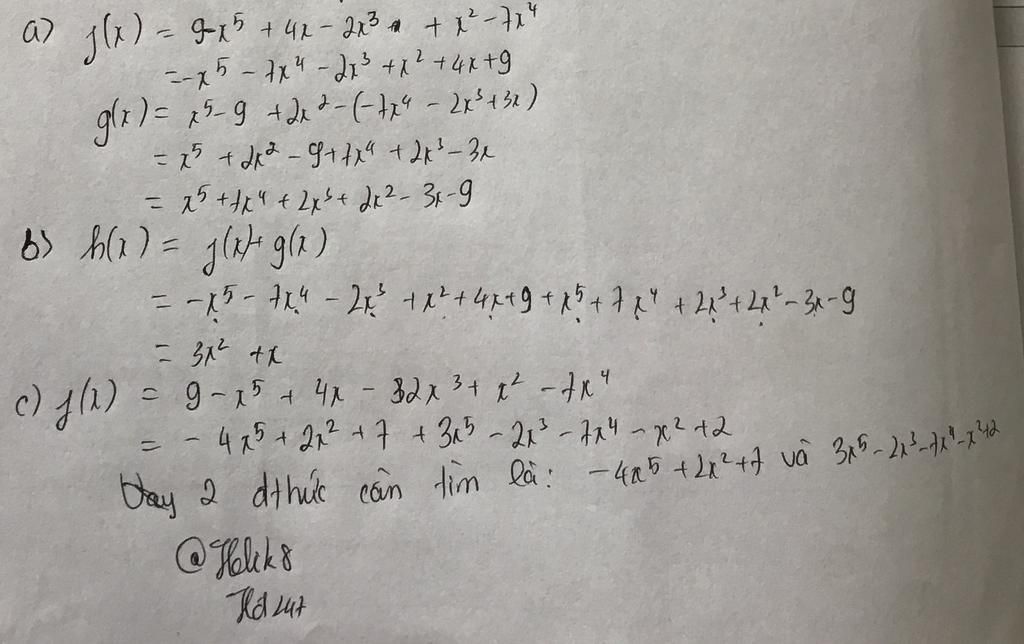 a) f(x) = 9-x⁵ + 4x - 2x³ + x² - 7x⁴
= -x⁵ - 7x⁴ - 2x³ + x² + 4x + 9
g(x) = x⁵ - 9 + 2x² - (-7x⁴ - 2x³ + 3x)
= x⁵ + 2x² - 9 + 7x⁴ + 2x³ - 3x
= x⁵ + 7x⁴ + 2x³ + 2x² - 3x - 9
b) h(x) = f(x) + g(x)
= -x⁵ - 7x⁴ - 2x³ + x² + 4x + 9 + x⁵ + 7x⁴ + 2x³ + 2x² - 3x - 9
= 3x² + x
c) f(x) = 9 - x⁵ + 4x - 2x³ + x² - 7x⁴
= - 4x⁵ + 2x² + 7 + 3x⁵ - 2x³ - 7x⁴ - x² + 2
Vay 2 đthức cần tìm là: -4x⁵ + 2x² + 7 và 3x⁵ - 2x³ - 7x⁴ - x² + 2